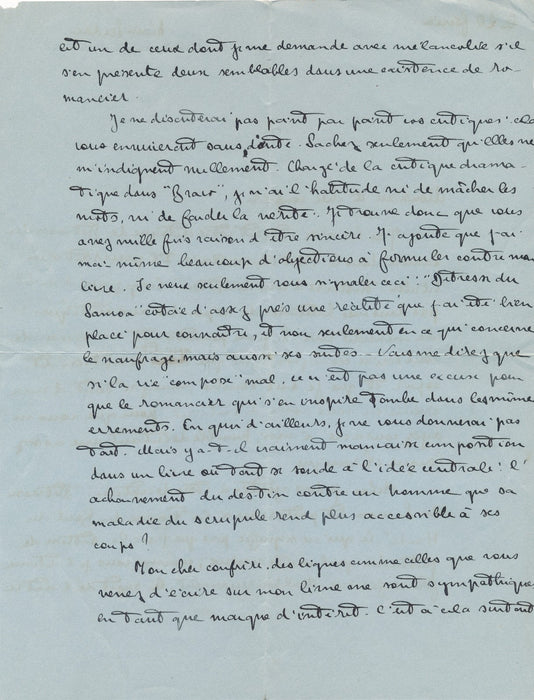 est un de ceux dont je me demande avec mélancolie s'il
s'en présente deux semblables dans une existence de ro-
mancier.
Je ne discuterai pas point par point vos critiques : cela
vous ennuierait sans doute. Sachez seulement qu'elles ne
m'indignent nullement. Chargé de la critique drama-
tique dans "Bravo", je n'ai l'habitude ni de mâcher les
mots, ni de farder la vérité. Je trouve donc que vous
avez mille fois raison d'être sincère. J'ajoute que j'ai
moi-même beaucoup d'objections à formuler contre mon
livre. Je veux seulement vous signaler ceci : "Détresse du
Samoa" côtoie d'assez près une réalité que j'ai été bien
placé pour connaître, et non seulement en ce qui concerne
le naufrage, mais aussi ses suites. Vous me direz que
si la vie "compose" mal, ce n'est pas une excuse pour
que le romancier qui s'en inspire tombe dans les même
errements. En quoi d'ailleurs, je ne vous donnerai pas
tort. Mais y a-t-il vraiment mauvaise composition
dans un livre où tout se soude à l'idée centrale : l'
acharnement du destin contre un homme que sa
maladie du scrupule rend plus accessible à ses
coups ?
Mon cher confrère, des lignes comme celles que vous
venez d'écrire sur mon livre me sont sympathiques
en tant que marque d'intérêt. C'est à cela surtout